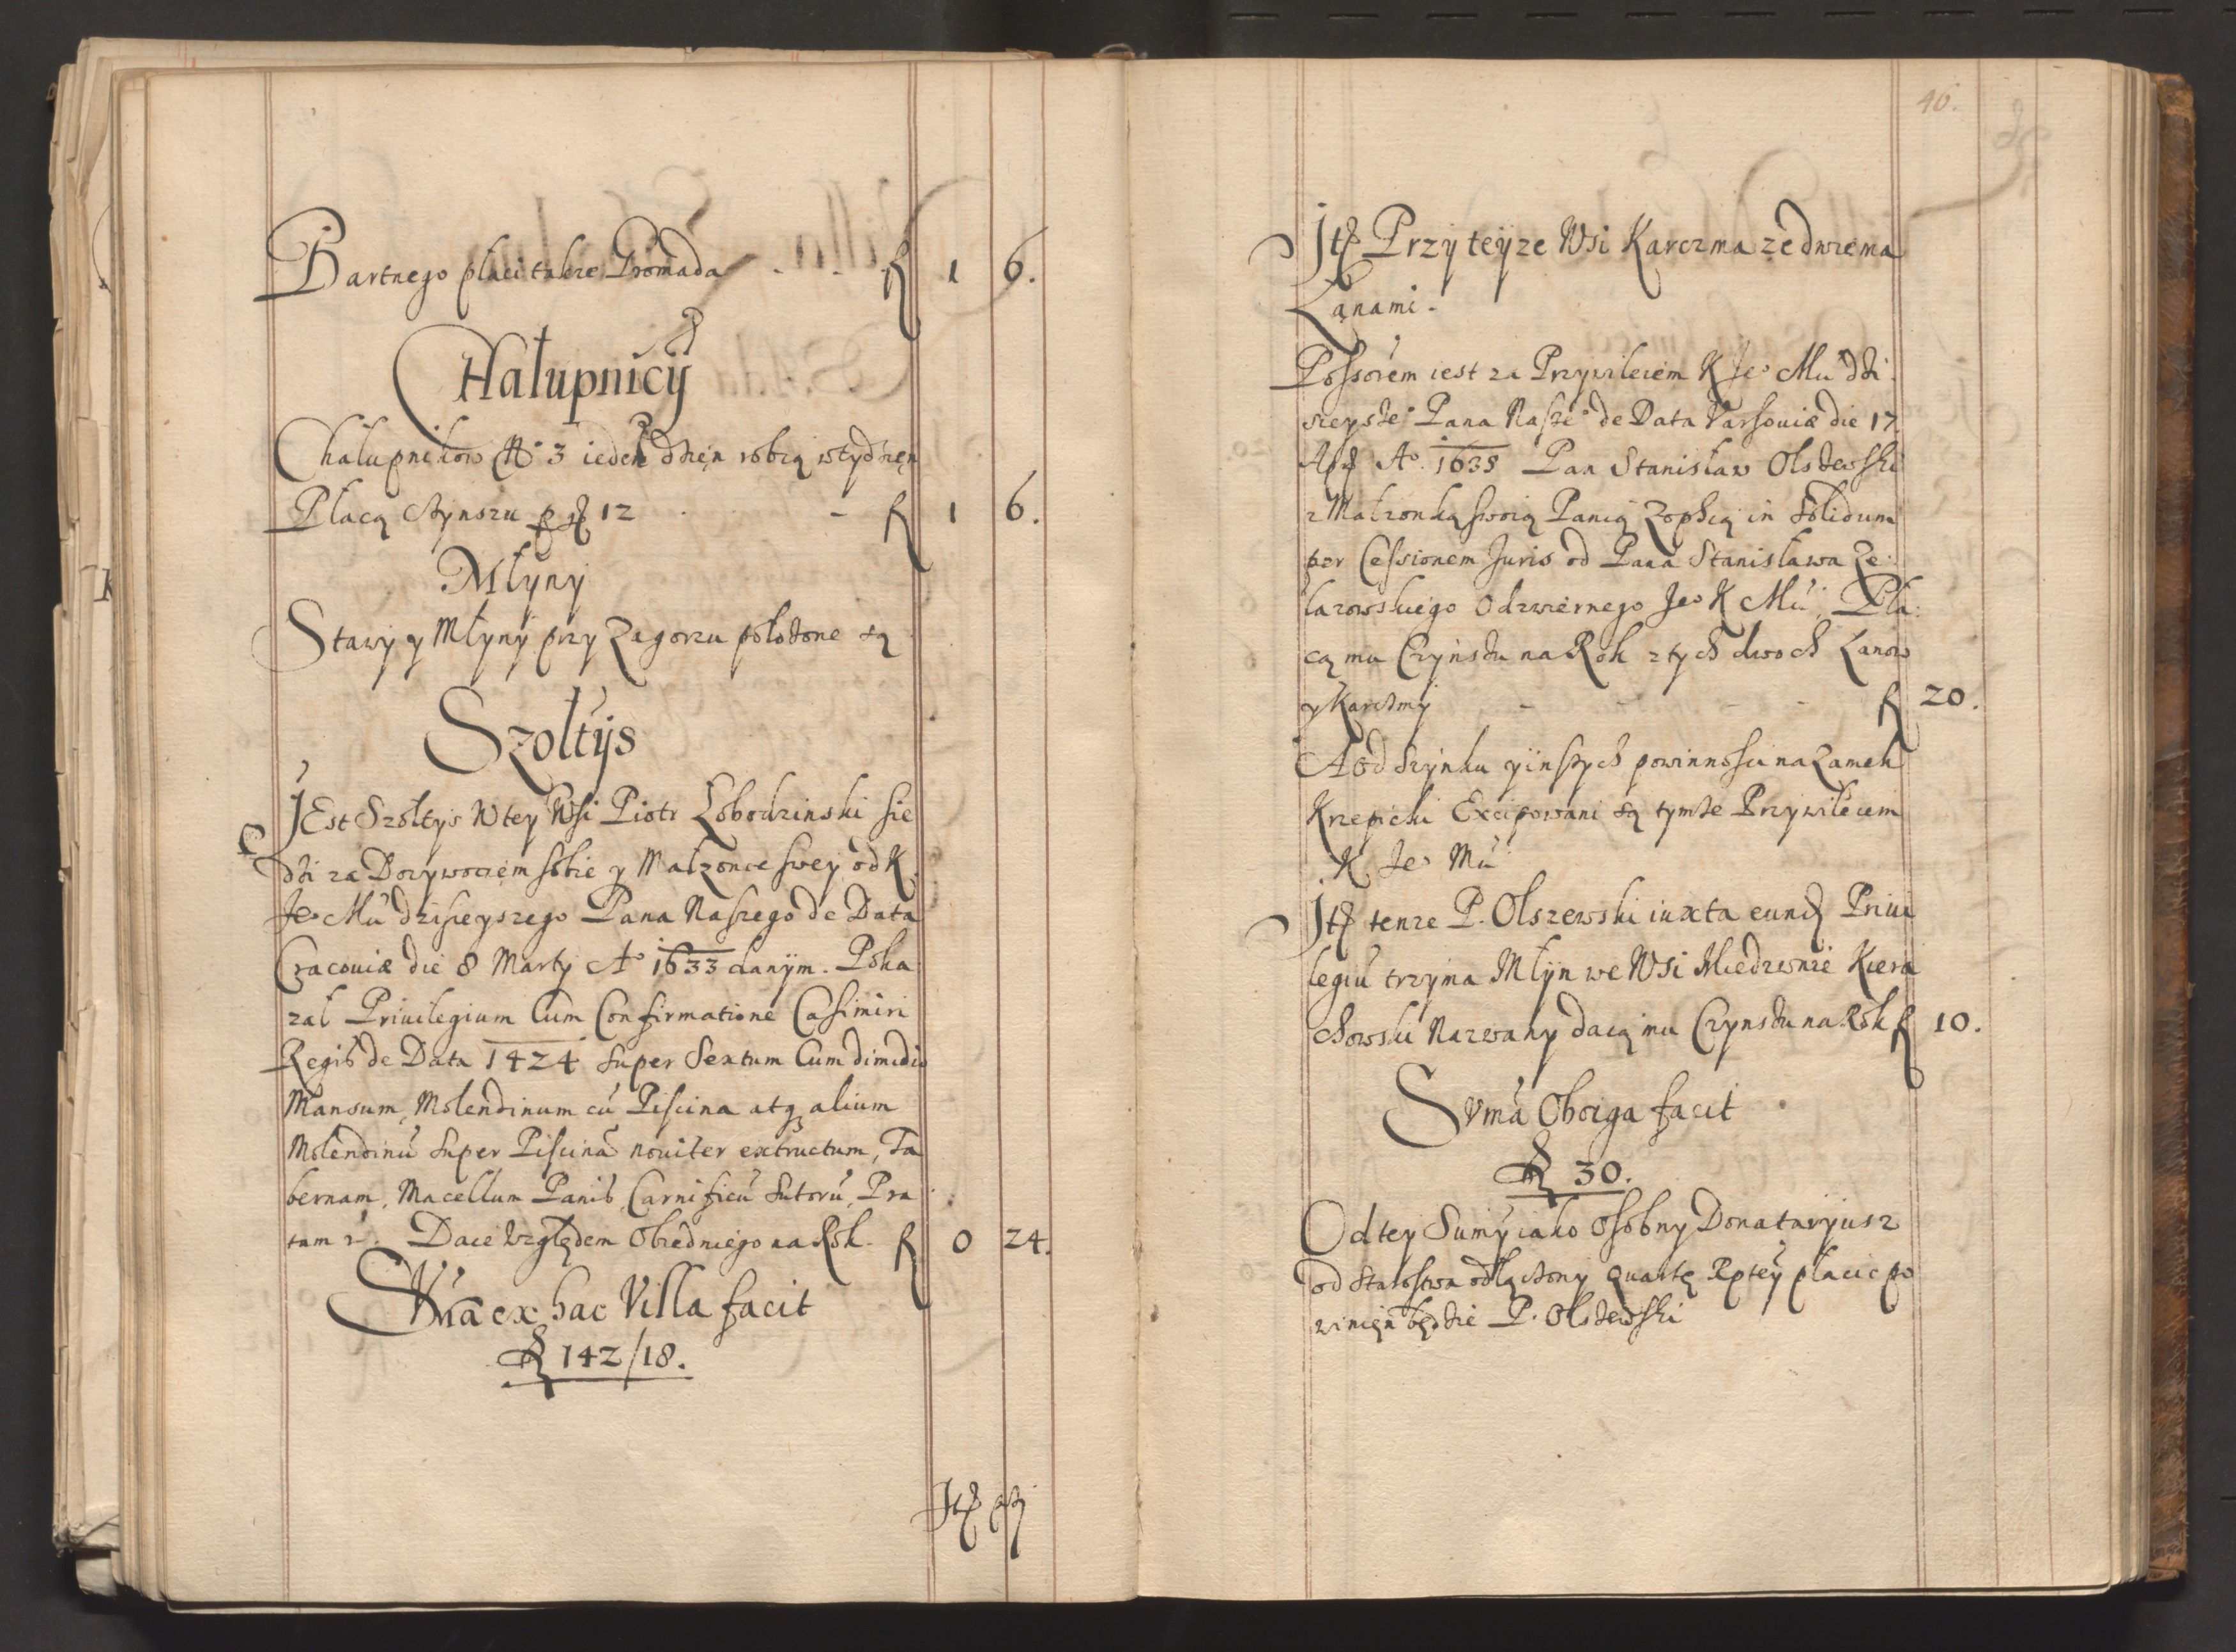 Bartnego placi takze Gromada - - f 1 6.
Chałupnicÿ
Chałupnikow No 3 ieden dzięn robią wtydzięn
Płacą Czynszu p gr 12 - f 1 6.
Młyny
Stawy y Młyny przy Zagorzu położone są
Szołtÿs
JEst Szołtys w tey Wsi Piotr Łobodzinski sie
dzi za Dozywociem sobie y Małzonce swey od K
Je° Mći dzisieyszego Pana Naszego de Data
Cracouiæ die 8 Martij A° 1633 danÿm. Poka
zał Priuilegium Cum Confirmatione Casimiri
Regis de Data 1424 super Sextum Cum dimidio
Mansum, Molendinum cū Piscina atq alium
Molendinū super Piscinā nouiter extructum, Ta
bernam, Macellum Panis, Carnificū Sutorū, Pra
tum &. Daie względem Obiedniego na Rok. f 0 24.
Sūma ex hac Villa facit
f 142/18.
Itē przÿ
46.
Itē Przy teÿze Wsi Karczma ze dwiema
Łanami.
Possorem iest za Przywileiem K Je° Mći dzi
sieysze° Pana Nasze° de Data Varsouiæ die 17
A° 1635 Pan Stanisław Olszewski
z Małzonką swoią Panią Zophią in solidum
per Cessionem Juris od Pana Stanisława Ze
lazowskiego Odzwiernego Je° K Mći. Pła
cą mu Czÿnszu na Rok z tych dwoch Łanow
y Karczmÿ - - - - f 20.
A od Szÿnku y inszych powinnosci na Zamek
Krzepicki Excipowani są tymze Przywileiem
K Je° Mći
Itē tenze P. Olszewski iuxta eund Priui
legiū trzÿma Młÿn we Wsi Miedzwnie Kiera
chowski Nazwany daią mu Czynszu na Rok f 10.
Sūma Oboiga facit
f 30.
Od tey Sumÿ iako Osobny Donataryusz
od starostwa odłączony quartę Rptey płacic po
winięn będzie P. Olszewski